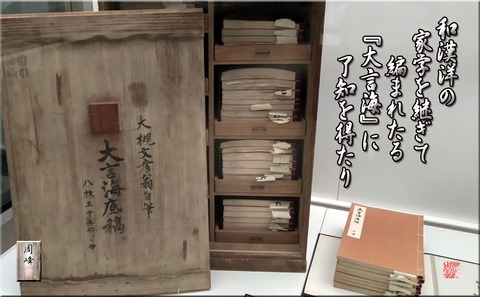 和漢洋の
家学を継ぎて
編まれたる
『大言海』に
了知を得たり
大槻文彦翁自筆
大言海底稿
周峰